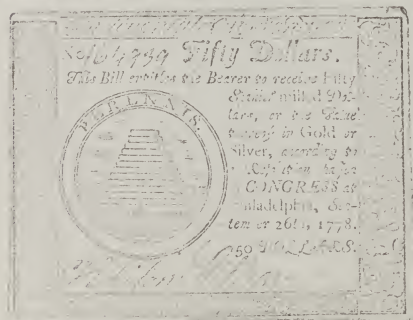 Fifty Dollars.
This Bill entitles the Bearer to receive Fifty
Spanish milled Dol-
lars, or the Value
thereof in Gold or
Silver, according to
a Resolution
CONGRESS at
Philadelphia, Sep-
tember 26th, 1778.
50 DOLLARS.
PERENNIS.